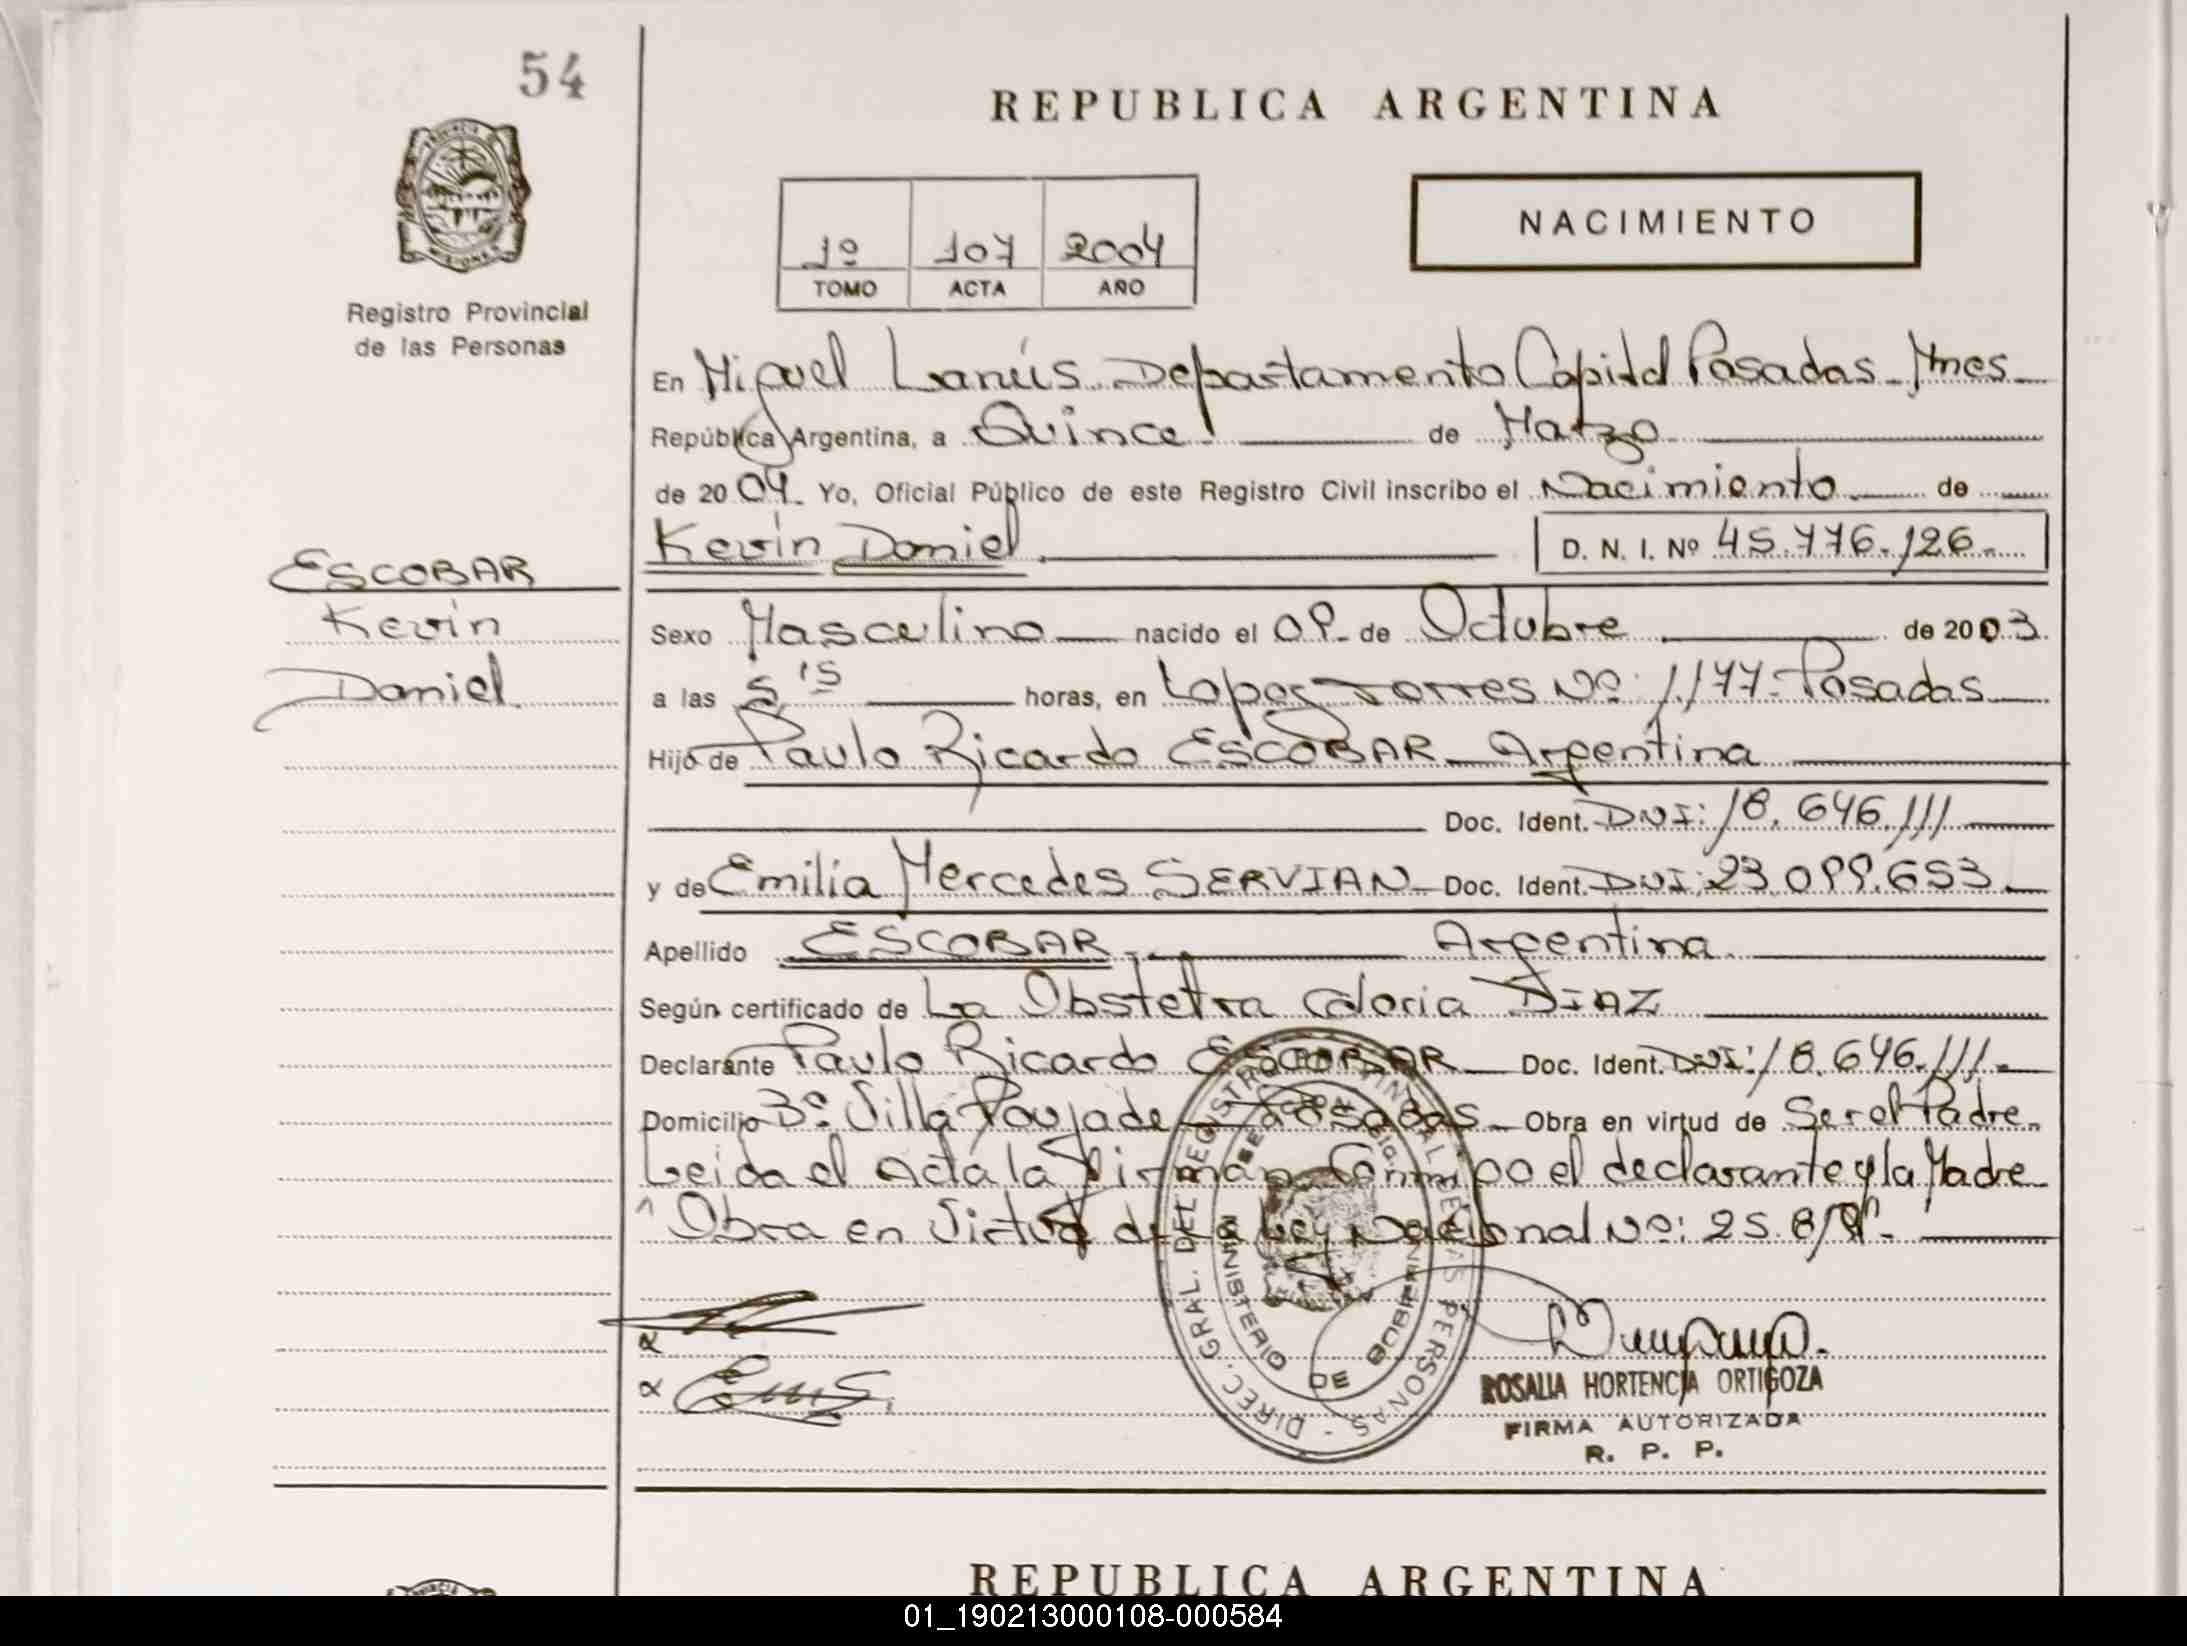 54
REPUBLICA ARGENTINA
NACIMIENTO
1º 107 2004
TOMO ACTA AÑO
Registro Provincial
de las Personas
En Miguel Lanús Departamento Capital Posadas - Mnes
República Argentina, a Quince de Marzo
de 2004. Yo, Oficial Público de este Registro Civil inscribo el Nacimiento de
Kevin Daniel D. N. I. Nº 45.776.126.-
ESCOBAR
Kevin
Daniel
Sexo Masculino nacido el 09. de Octubre de 2003.
a las 5,15 horas, en Lopez Torres Nº: 1.177- Posadas
Hijo de Paulo Ricardo ESCOBAR - Argentina
Doc. Ident. DNI: 18.646.111
y de Emilia Mercedes SERVIAN - Doc. Ident. DNI: 23.099.653
Apellido ESCOBAR. Argentina.
Según certificado de La Obstetra Gloria DIAZ
Declarante Paulo Ricardo ESCOBAR Doc. Ident. DNI: 18.646.111.-
Domicilio 3º Villa Poujade - Posadas - Obra en virtud de Ser el Padre.
Leida el Acta la Firman Conmigo el declarante y la Madre
Obra en Virtud de la Ley Nacional Nº: 25.819.-
DIREC. GRAL. DEL REGISTRO PROVINCIAL DE LAS PERSONAS
MINISTERIO DE GOBIERNO
ROSALIA HORTENCIA ORTIGOZA
FIRMA AUTORIZADA
R. P. P.
REPUBLICA ARGENTINA
01_190213000108-000584